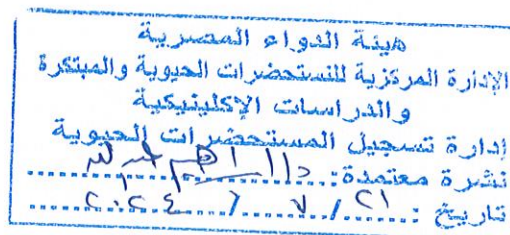 هيئة الدواء المصرية
الإدارة المركزية للمستحضرات الحيوية والمبتكرة
والدراسات الإكلينيكية
إدارة تسجيل المستحضرات الحيوية
نشرة معتمدة:
تاريخ : ٢١ / ٧ / ٢٠٢٤